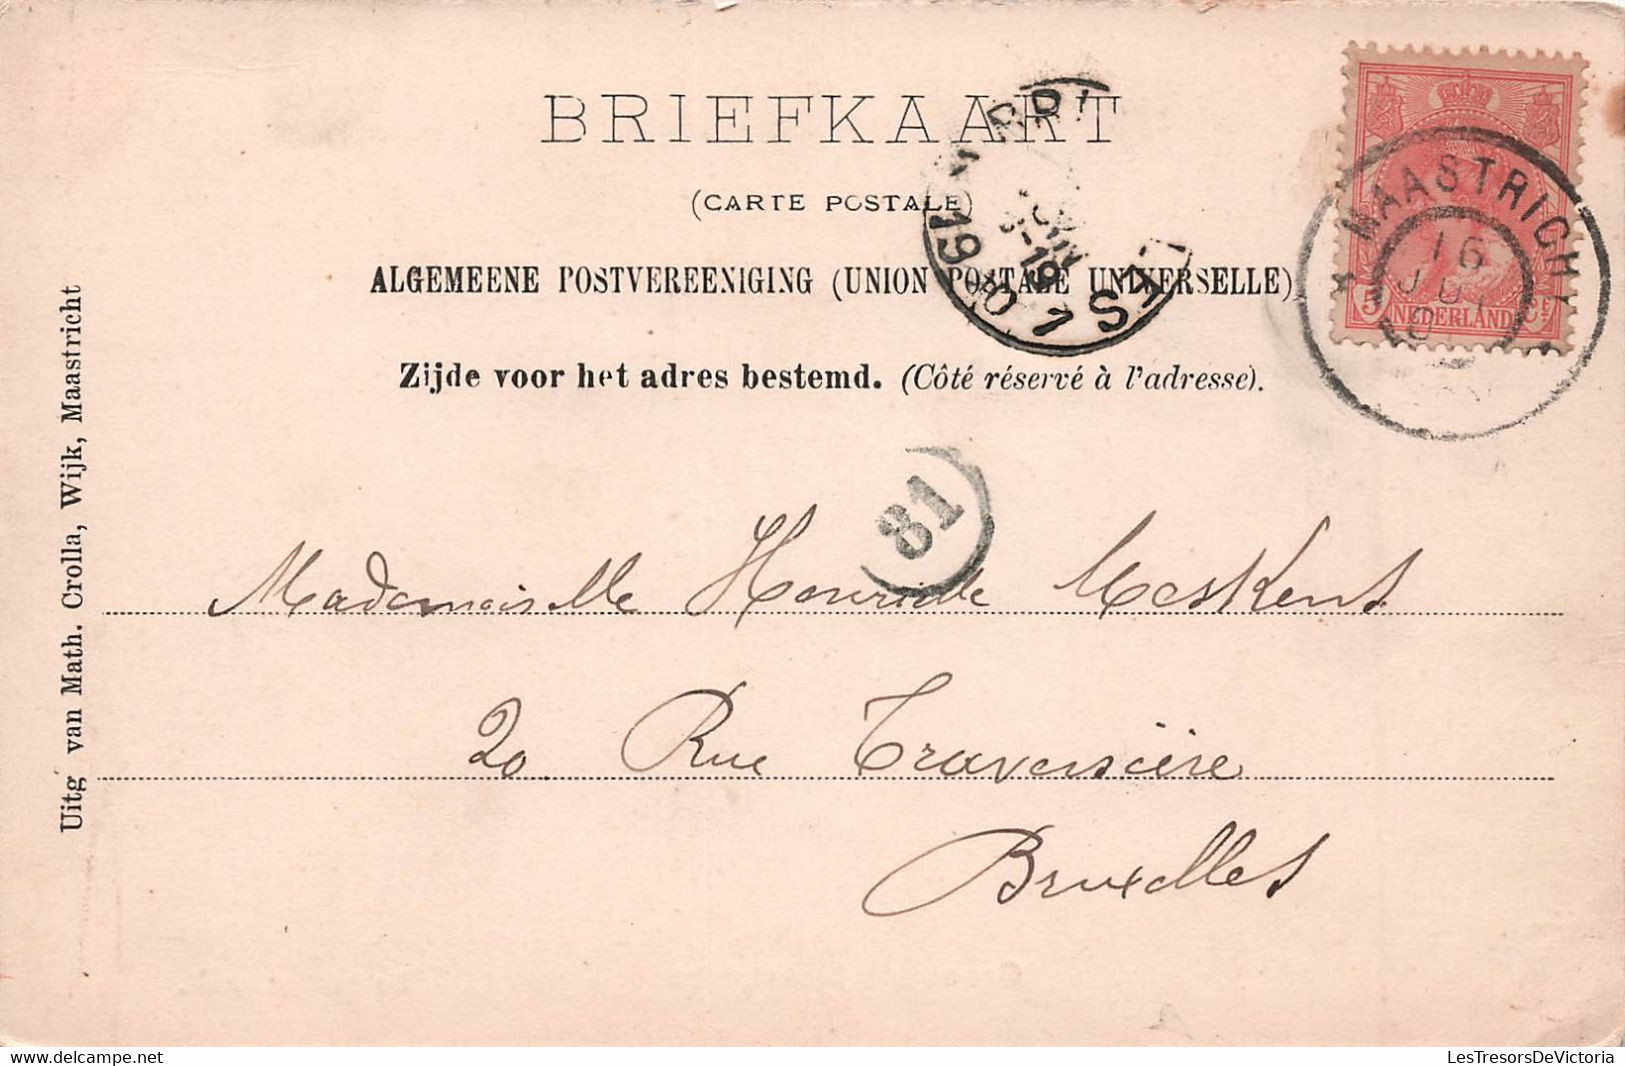 BRIEFKAART
(CARTE POSTALE)
ALGEMEENE POSTVEREENIGING (UNION POSTALE UNIVERSELLE)
Zijde voor het adres bestemd. (Côté réservé à l'adresse).
MAASTRICHT
16
5
NEDERLAND
1901
81
Mademoiselle Henriette
20 Rue Traversière
Bruxelles
Uitg van Math. Crolla, Wijk, Maastricht
www.delcampe.net
LesTresorsDeVictoria